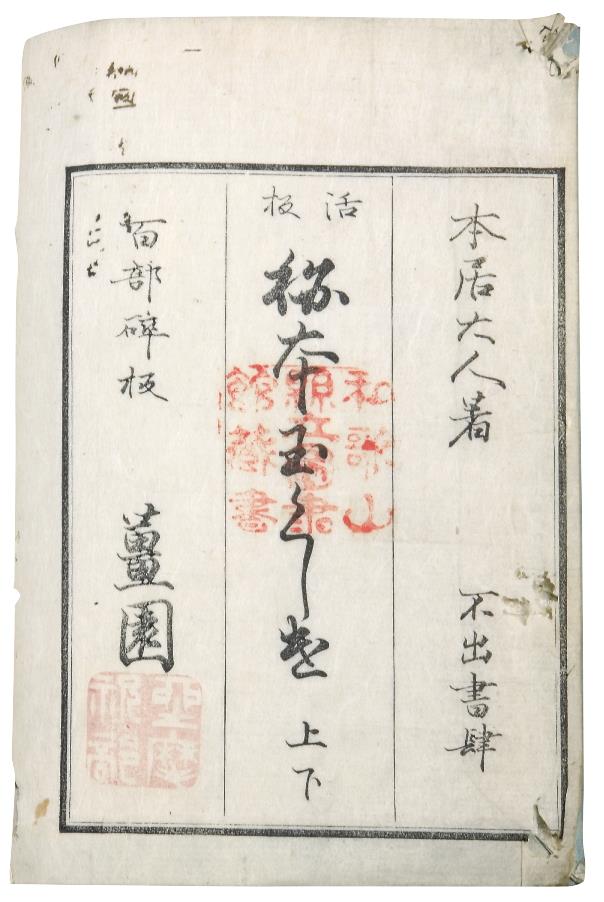 本居大人著
不出書肆
活板
秘本玉くしげ
上下
百部砕板
薑園
和歌山
県立図書
館蔵書